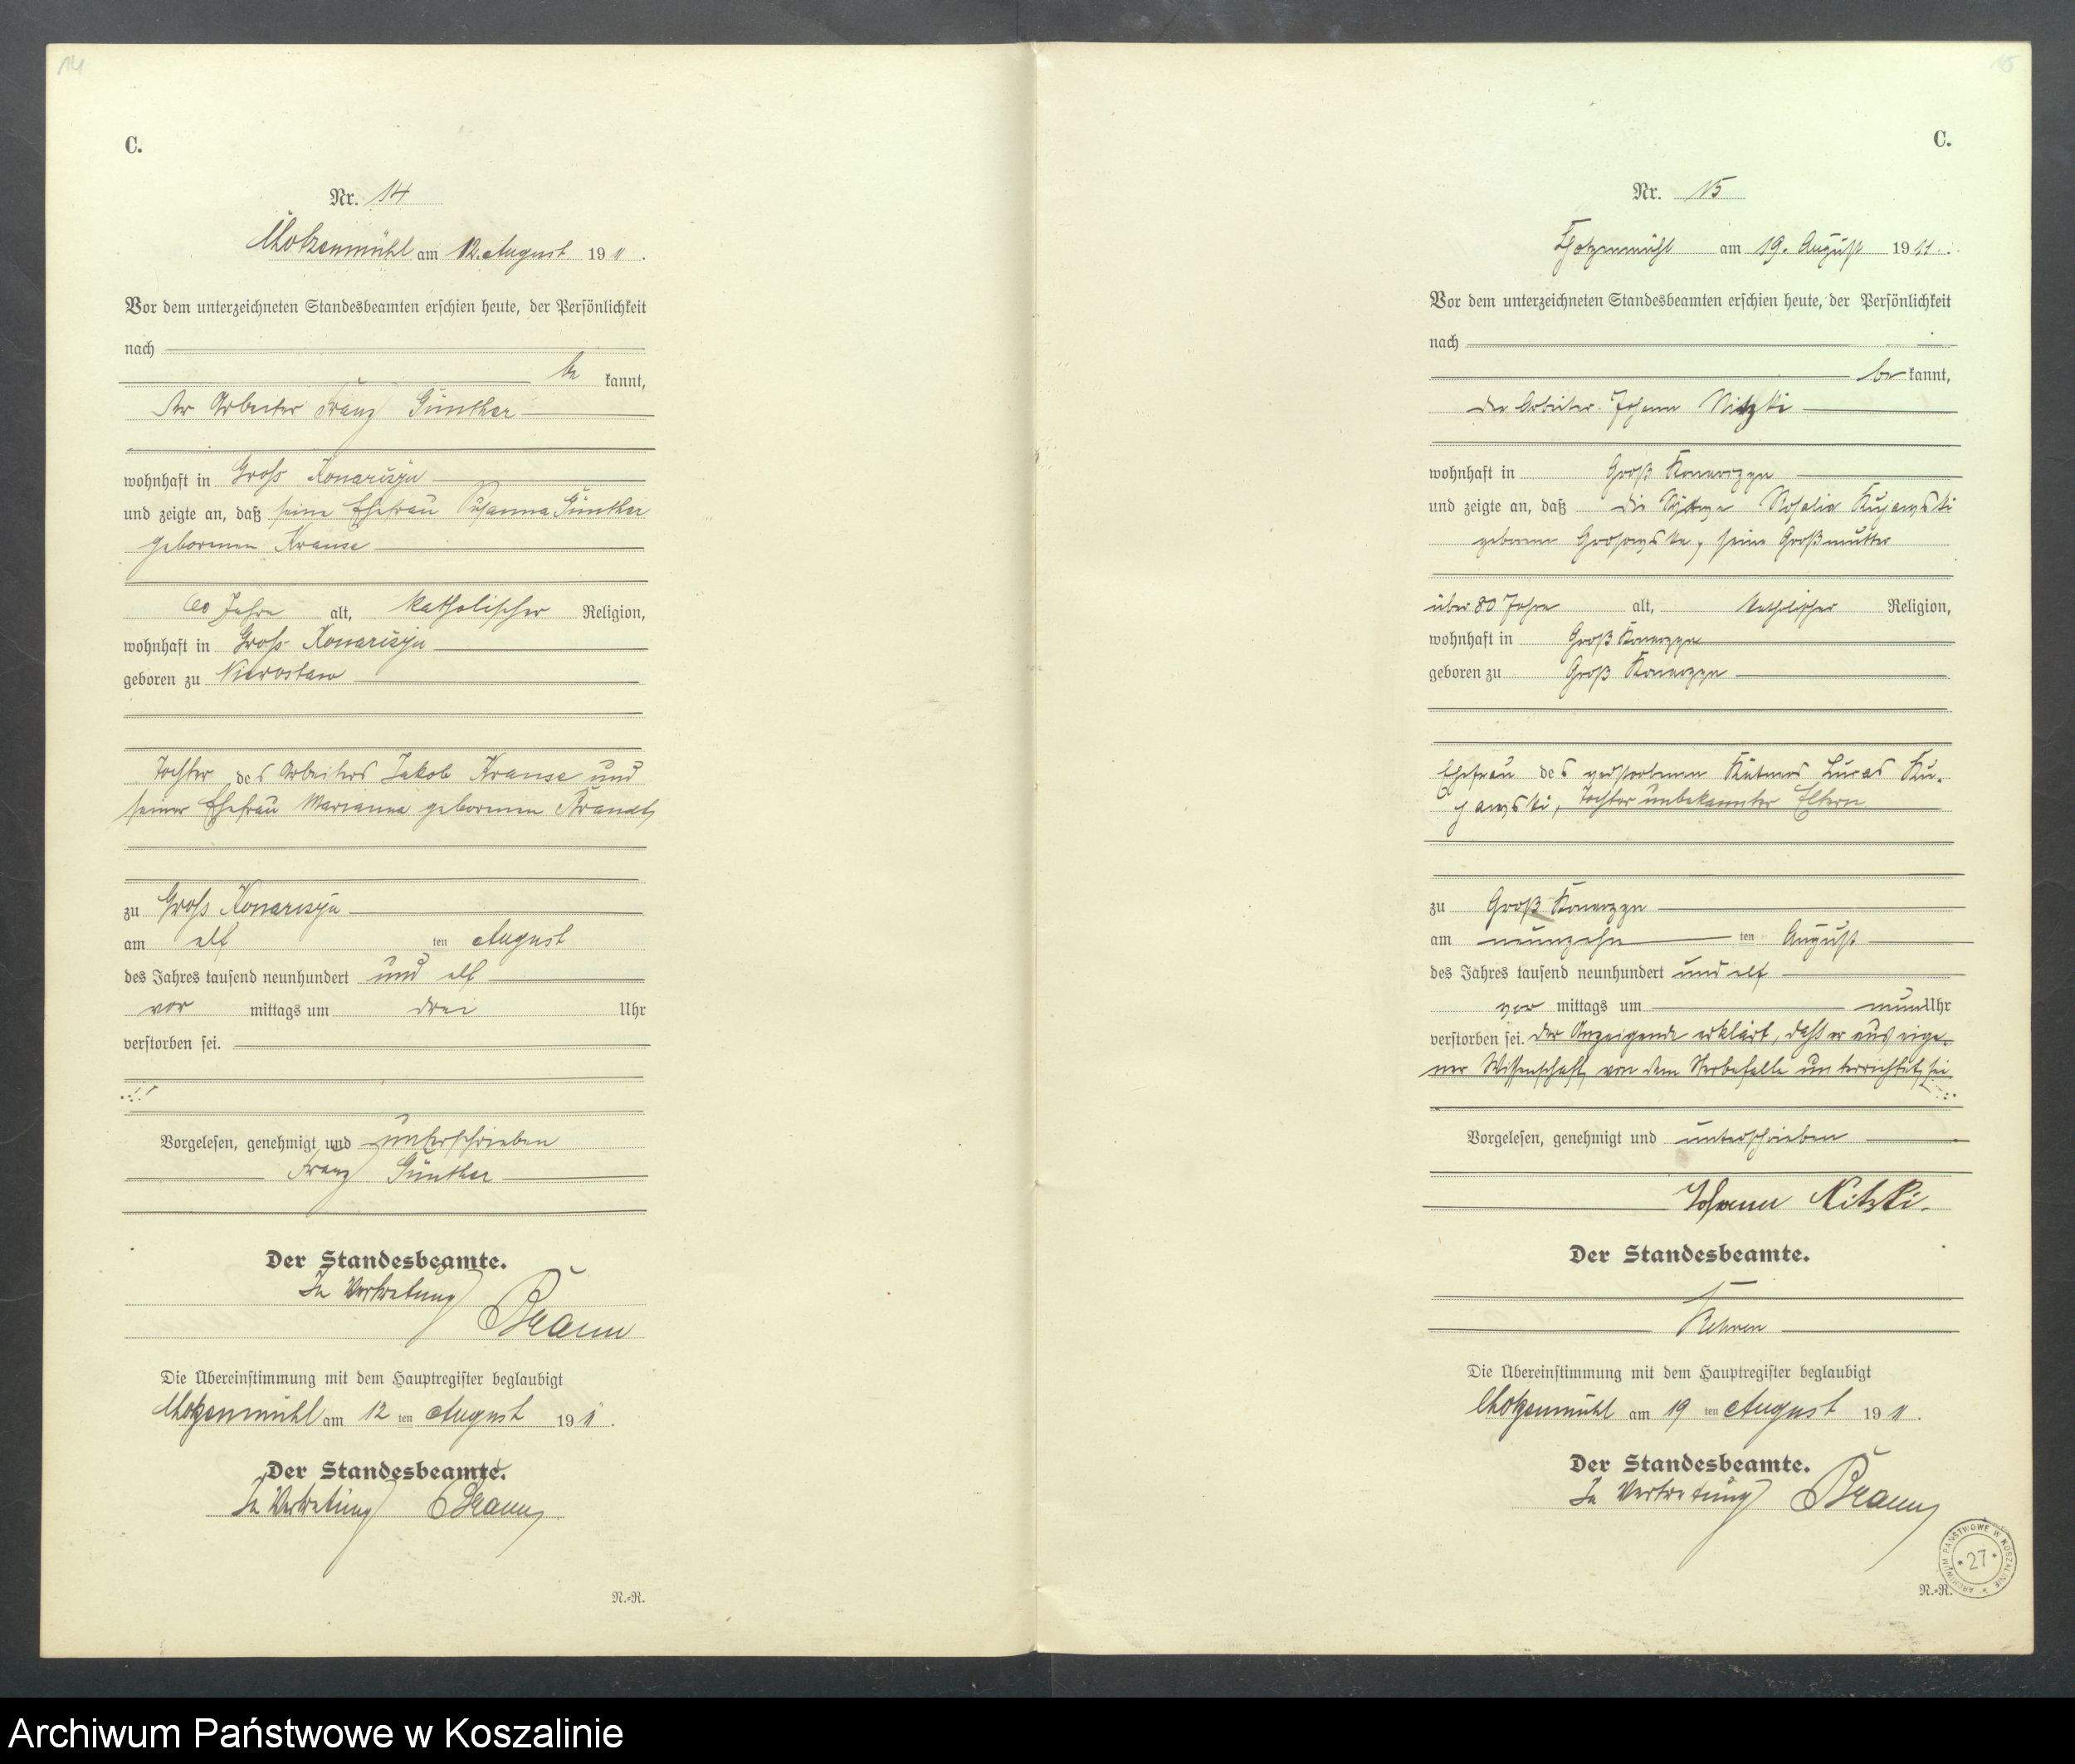 14
C.
Nr. 14
Chotzenmühl am 12. August 1911.
Vor dem unterzeichneten Standesbeamten erschien heute, der Persönlichkeit
nach
be kannt,
der Arbeiter Franz Günther
wohnhaft in Groß Konarczyn
und zeigte an, daß seine Ehefrau Susanna Günther
geborenen Krause
60 Jahre alt, katholischer Religion,
wohnhaft in Groß Konarczyn
geboren zu Nierostaw
Tochter des Arbeiters Jakob Krause und
seiner Ehefrau Marianna geborenen Brandt
zu Groß Konarczyn
am elf ten August
des Jahres tausend neunhundert und elf
vor mittags um drei Uhr
verstorben sei.
Vorgelesen, genehmigt und unterschrieben
Franz Günther
Der Standesbeamte.
In Vertretung
Braun
Die Übereinstimmung mit dem Hauptregister beglaubigt
Chotzenmühl am 12 ten August 1911.
Der Standesbeamte.
In Vertretung Braun
N.-R.
15
C.
Nr. 15
Chotzenmühl am 19. August 1911.
Vor dem unterzeichneten Standesbeamten erschien heute, der Persönlichkeit
nach
be kannt,
der Arbeiter Johann Nitzki
wohnhaft in Groß Konarzyn
und zeigte an, daß die Rosalia
geborene seine Großmutter
über 80 Jahre alt, katholischer Religion,
wohnhaft in Groß Konarzyn
geboren zu Groß Konarzyn
Ehefrau des verstorbenen Lucas
Tochter unbekannter Eltern
zu Groß Konarzyn
am neunzehn ten August
des Jahres tausend neunhundert und elf
vor mittags um neun Uhr
verstorben sei. Der Anzeigende erklärt, daß er aus eige-
ner Wissenschaft von dem Sterbefalle unterrichtet sei
Vorgelesen, genehmigt und unterschrieben
Johann Nitzki.
Der Standesbeamte.
Die Übereinstimmung mit dem Hauptregister beglaubigt
Chotzenmühl am 19 ten August 1911.
Der Standesbeamte.
In Vertretung Braun
ARCHIWUM PAŃSTWOWE W KOSZALINIE
* 27 *
N.-R.
Archiwum Państwowe w Koszalinie